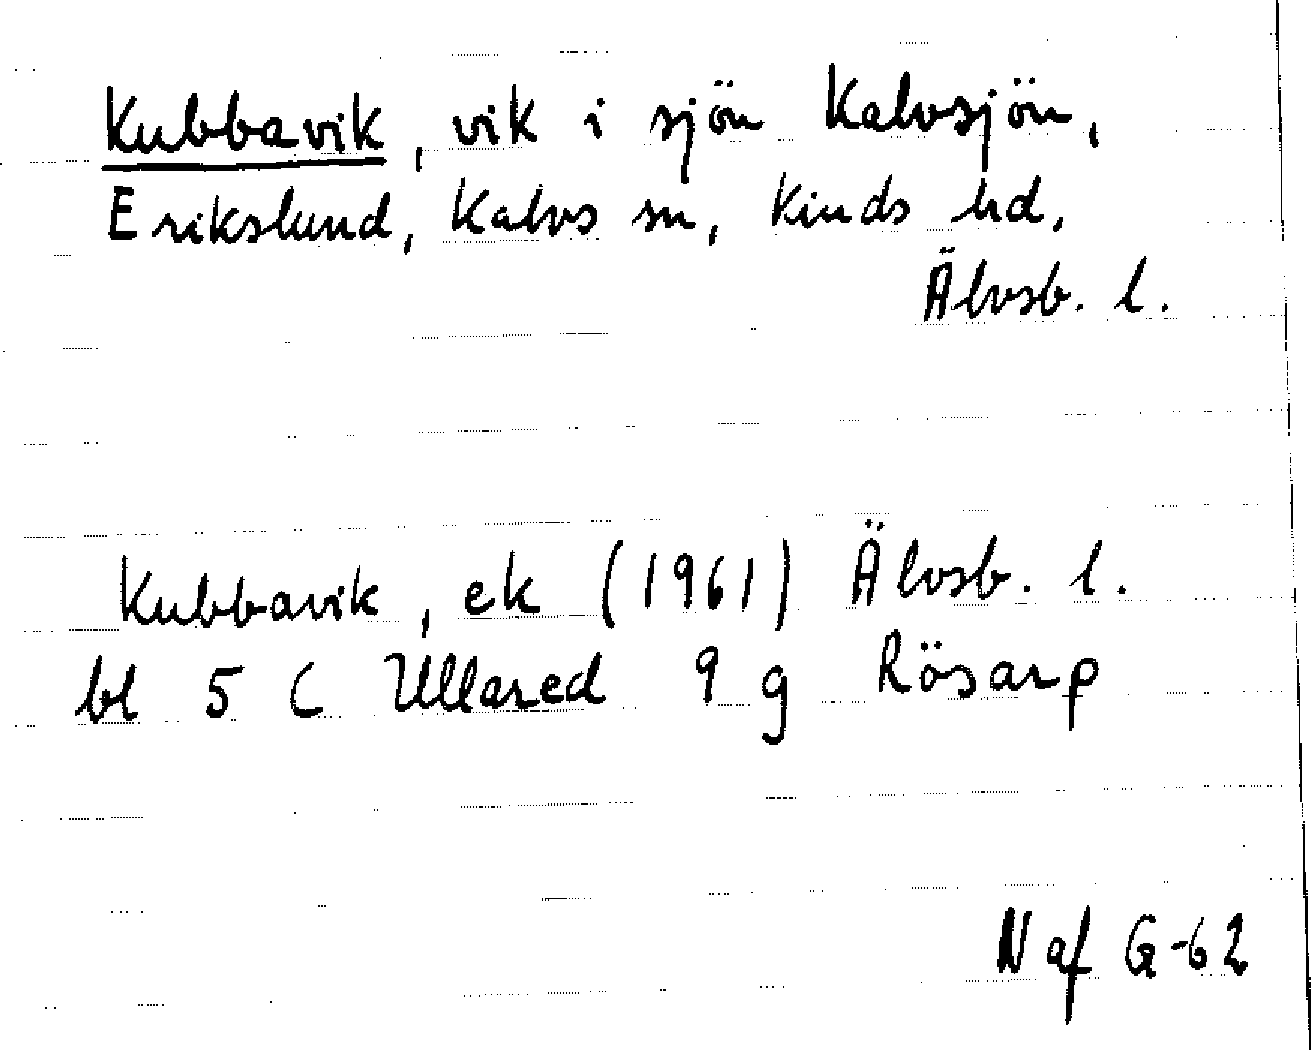 Kubbavik, vik i sjön Kalvsjön,
Erikslund, Kalvs sn, Kinds hd,
Älvsb. l.
Kubbavik, ek (1961) Älvsb. l.
bl 5 C Ullared 9 g Rösarp
N af G-62